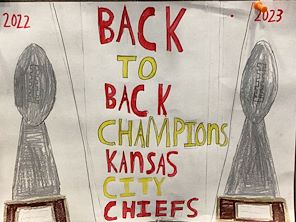 2022
2023
BACK
TO
BACK
CHAMPIONS
KANSAS
CITY
CHIEFS